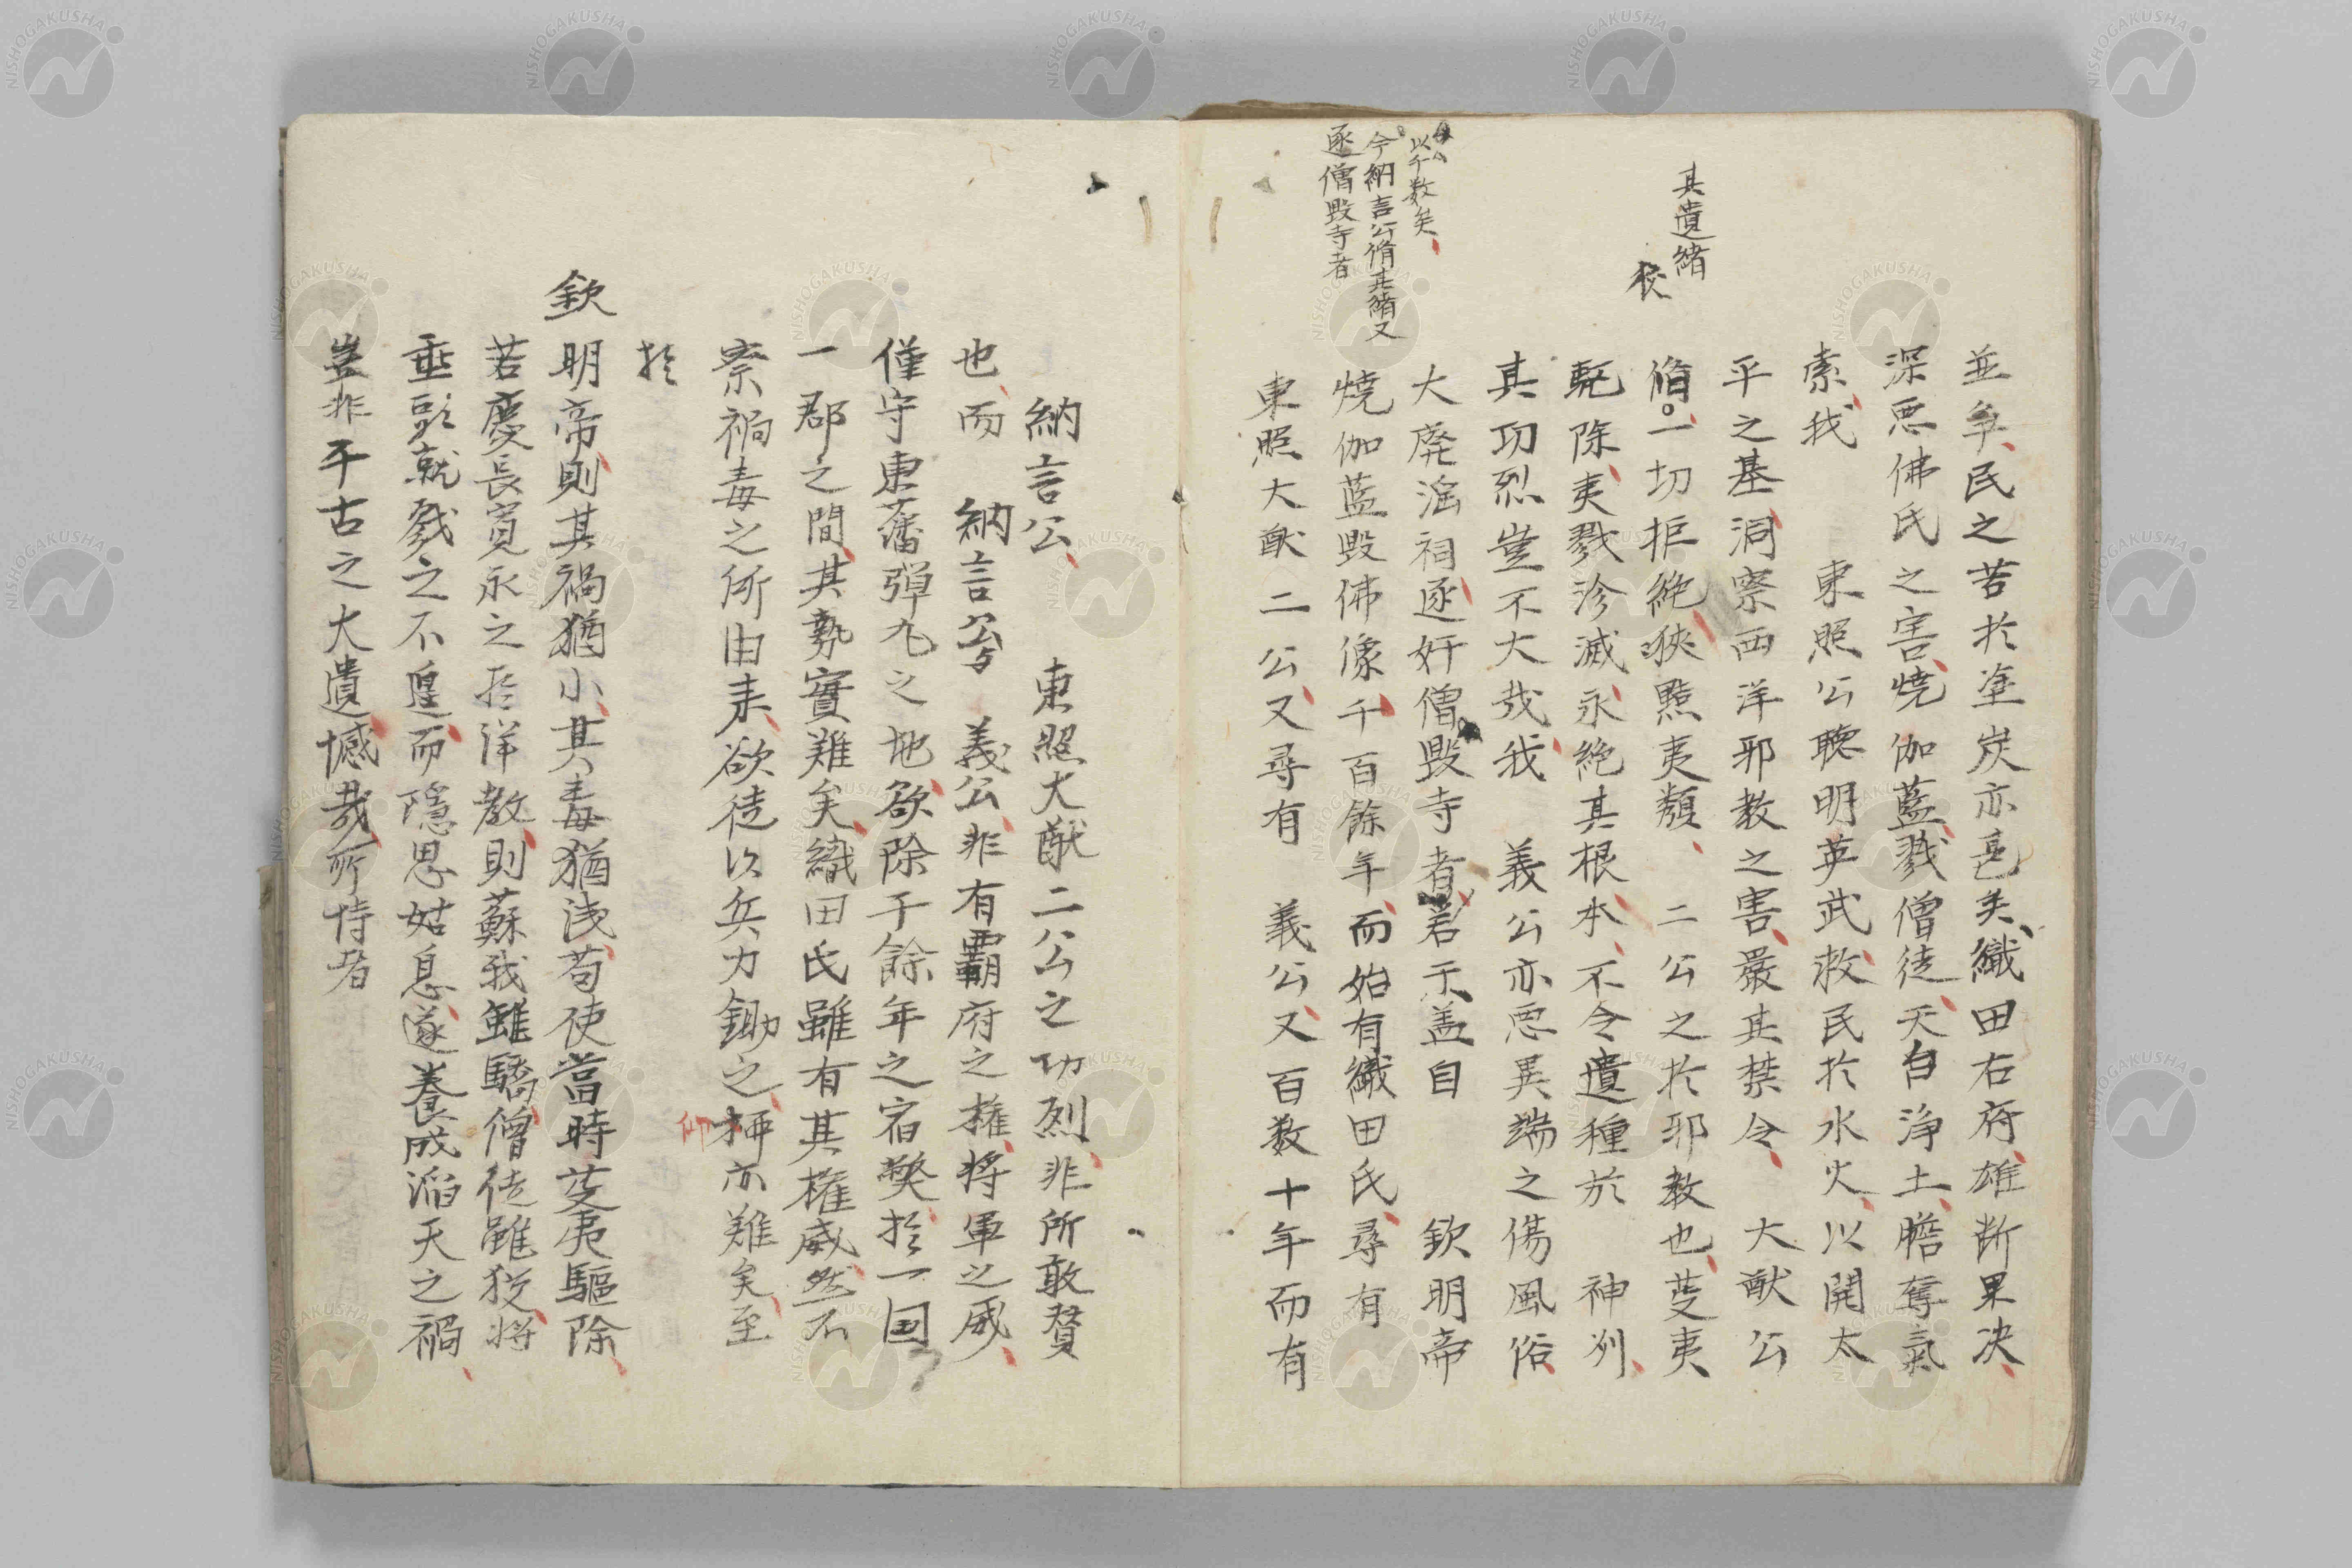 其遺緒
狡
以千数矣
今納言公脩其緒又
逐僧毀寺者
並争民之苦於塗炭亦甚矣織田右府雄断果决
深悪佛氏之害燒伽藍戮僧徒天自浄土膽奪氣
索我　東照公聰明英武救民於水火以開太
平之基洞察西洋邪教之害嚴其禁令　大猷公
脩一切拒絶狹黠夷類　二公之於邪教也芟夷
駈除夷戮殄滅永絶其根本不令遺種於　神州
其功烈豈不大哉我　義公亦悪異端之傷風俗
大廃淫祠逐奸僧毀寺者若干盖自　欽明帝
燒伽藍毀佛像千百餘年而始有織田氏尋有
東照大猷二公又尋有　義公又百数十年而有
納言公　東照大猷二公之功烈非所敢賛
也而　納言公与　義公非有覇府之権将軍之威
僅守東藩彈丸之地欲除千餘年之宿弊於一国
一郡之間其勢實難矣織田氏雖有其権威然不
察禍毒之所由来欲徒以兵力鋤之抑亦難矣至
於
欽明帝則其禍猶小其毒猶浅苟使當時芟夷驅除
若慶長寛永之於洋教則蘇我雖驕僧徒雖狡将
垂頭就戮之不遑而隱思姑息遂養成滔天之禍
豈非千古之大遺憾哉所恃者
NISHOGAKUSHA